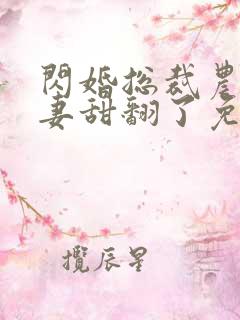 閃婚总裁農
妻甜翻了免
攬辰星